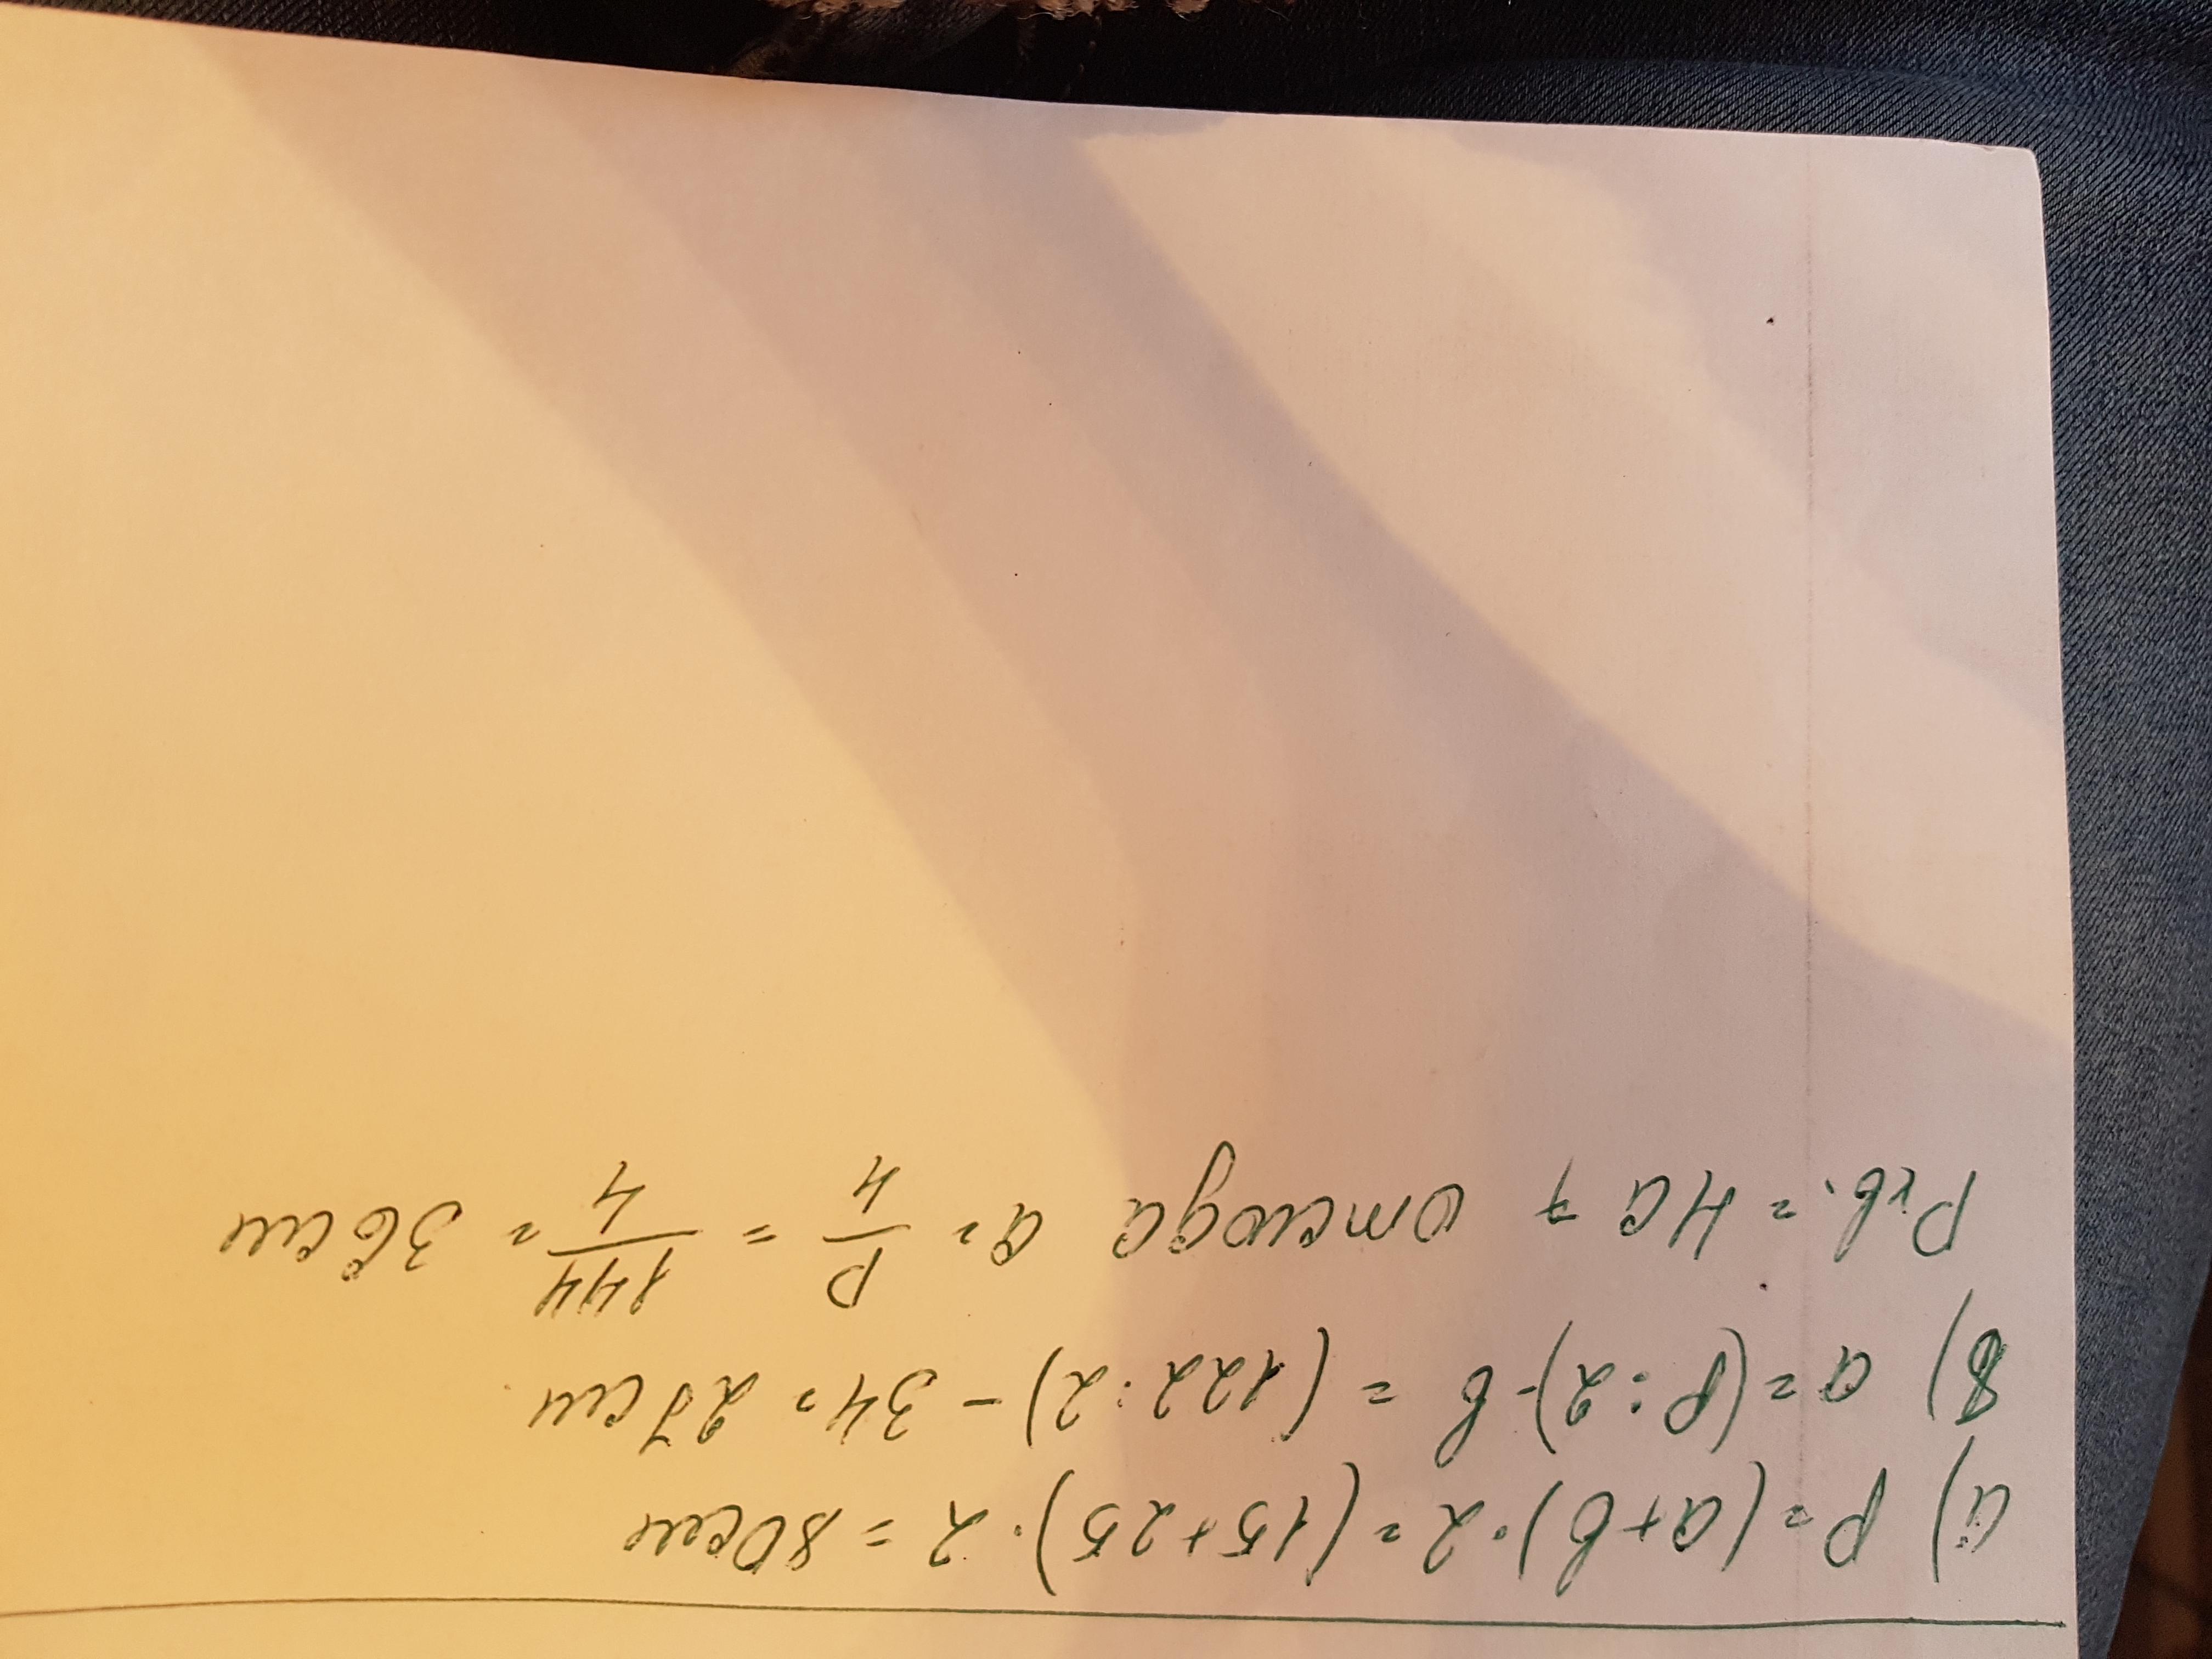 а) P=(a+b)·2=(15+25)·2=80см
в) a=(P:2)-b=(122:2)-34=27см
Pкв.=4a → откога a=P/4=144/4=36см